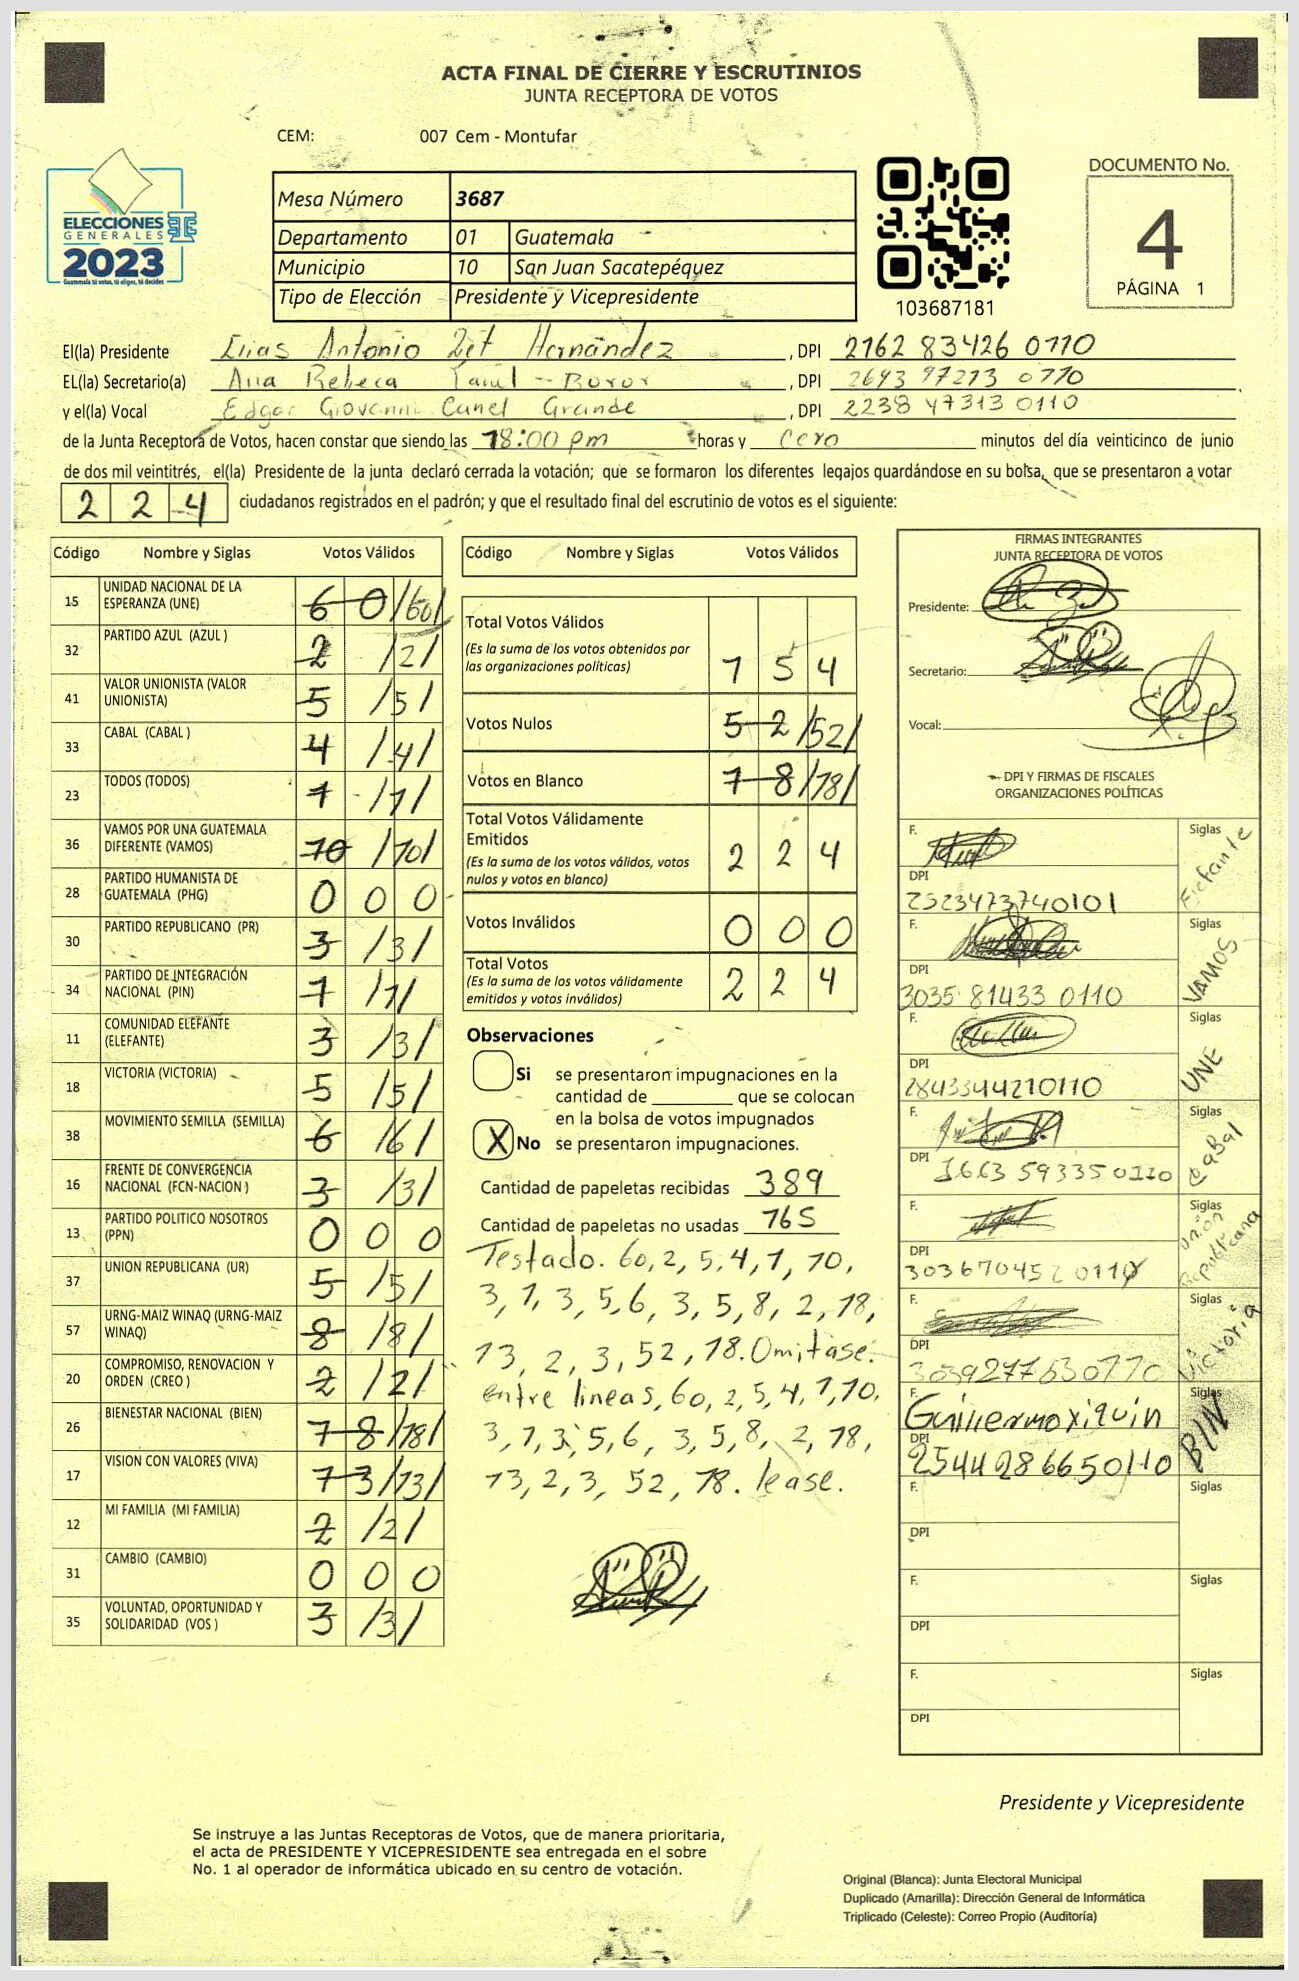 ACTA FINAL DE CIERRE Y ESCRUTINIOS
JUNTA RECEPTORA DE VOTOS
CEM: 007 Cem - Montufar
ELECCIONES
GENERALES
2023
Guatemala tú votas, tú eliges, tú decides
Mesa Número 3687
Departamento 01 Guatemala
Municipio 10 San Juan Sacatepéquez
Tipo de Elección Presidente y Vicepresidente
103687181
DOCUMENTO No.
4
PÁGINA 1
El(la) Presidente Elias Antonio Zet Hernández, DPI 2162 83426 0110
EL(la) Secretario(a) Ana Rebeca Boror, DPI 2693 97213 0110
y el(la) Vocal Edgar Giovanni Canel Grande, DPI 2238 47313 0110
de la Junta Receptora de Votos, hacen constar que siendo las 18:00 pm horas y cero minutos del día veinticinco de junio
de dos mil veintitrés, el(la) Presidente de la junta declaró cerrada la votación; que se formaron los diferentes legajos guardándose en su bolsa, que se presentaron a votar
2 2 4 ciudadanos registrados en el padrón; y que el resultado final del escrutinio de votos es el siguiente:
Código Nombre y Siglas Votos Válidos
15 UNIDAD NACIONAL DE LA ESPERANZA (UNE) 6 0 /60/
32 PARTIDO AZUL (AZUL ) 2 /2/
41 VALOR UNIONISTA (VALOR UNIONISTA) 5 /5/
33 CABAL (CABAL ) 4 /4/
23 TODOS (TODOS) 1 /1/
36 VAMOS POR UNA GUATEMALA DIFERENTE (VAMOS) 10 /10/
28 PARTIDO HUMANISTA DE GUATEMALA (PHG) 0 0 0
30 PARTIDO REPUBLICANO (PR) 3 /3/
34 PARTIDO DE INTEGRACIÓN NACIONAL (PIN) 1 /1/
11 COMUNIDAD ELEFANTE (ELEFANTE) 3 /3/
18 VICTORIA (VICTORIA) 5 /5/
38 MOVIMIENTO SEMILLA (SEMILLA) 6 /6/
16 FRENTE DE CONVERGENCIA NACIONAL (FCN-NACION ) 3 /3/
13 PARTIDO POLITICO NOSOTROS (PPN) 0 0 0
37 UNION REPUBLICANA (UR) 5 /5/
57 URNG-MAIZ WINAQ (URNG-MAIZ WINAQ) 8 /8/
20 COMPROMISO, RENOVACION Y ORDEN (CREO ) 2 /2/
26 BIENESTAR NACIONAL (BIEN) 1 8 /18/
17 VISION CON VALORES (VIVA) 1 3 /13/
12 MI FAMILIA (MI FAMILIA) 2 /2/
31 CAMBIO (CAMBIO) 0 0 0
35 VOLUNTAD, OPORTUNIDAD Y SOLIDARIDAD (VOS ) 3 /3/
Código Nombre y Siglas Votos Válidos
Total Votos Válidos
(Es la suma de los votos obtenidos por
las organizaciones políticas) 1 5 4
Votos Nulos 5 2 /52/
Votos en Blanco 1 8 /18/
Total Votos Válidamente
Emitidos
(Es la suma de los votos válidos, votos
nulos y votos en blanco) 2 2 4
Votos Inválidos 0 0 0
Total Votos
(Es la suma de los votos válidamente
emitidos y votos inválidos) 2 2 4
Observaciones
Si se presentaron impugnaciones en la
cantidad de ________ que se colocan
en la bolsa de votos impugnados
X No se presentaron impugnaciones.
Cantidad de papeletas recibidas 389
Cantidad de papeletas no usadas 165
Testado. 60, 2, 5, 4, 1, 10,
3, 1, 3, 5, 6, 3, 5, 8, 2, 18,
13, 2, 3, 52, 18. Omitase.
entre lineas, 60, 2, 5, 4, 1, 10,
3, 1, 3, 5, 6, 3, 5, 8, 2, 18,
13, 2, 3, 52, 18. lease.
FIRMAS INTEGRANTES
JUNTA RECEPTORA DE VOTOS
Presidente:
Secretario:
Vocal:
DPI Y FIRMAS DE FISCALES
ORGANIZACIONES POLÍTICAS
F. Siglas Elefante
DPI 2523473740101
F. Siglas VAMOS
DPI 3035 81433 0110
F. Siglas UNE
DPI 2843344210110
F. Siglas CaBal
DPI 1663 59335 0110
F. Siglas Unión Republicana
DPI 303670452 0110
F. Siglas Victoria
DPI 3039277630110
F. Guillermo Xiquin Siglas BIN
DPI 2544 28665 0110
F. Siglas
DPI
F. Siglas
DPI
F. Siglas
DPI
Presidente y Vicepresidente
Se instruye a las Juntas Receptoras de Votos, que de manera prioritaria,
el acta de PRESIDENTE Y VICEPRESIDENTE sea entregada en el sobre
No. 1 al operador de informática ubicado en su centro de votación.
Original (Blanca): Junta Electoral Municipal
Duplicado (Amarilla): Dirección General de Informática
Triplicado (Celeste): Correo Propio (Auditoría)